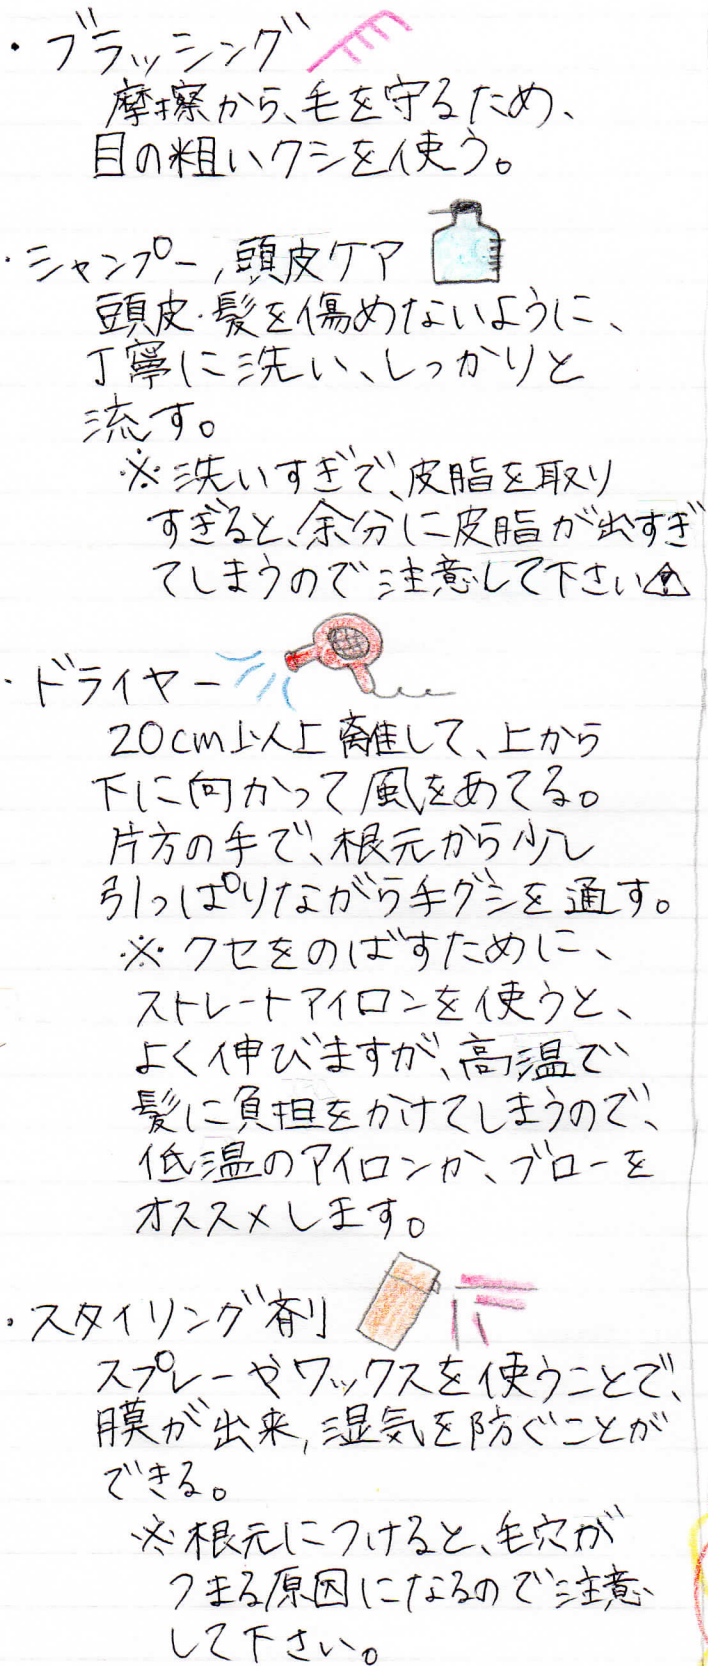 ・ブラッシング
摩擦から、毛を守るため、
目の粗いクシを使う。
・シャンプー,頭皮ケア
頭皮・髪を傷めないように、
丁寧に洗い、しっかりと
流す。
※洗いすぎで、皮脂を取り
すぎると、余分に皮脂が出すぎ
てしまうので注意して下さい⚠
・ドライヤー
20cm以上離して、上から
下に向かって風をあてる。
片方の手で、根元から少し
引っぱりながら手グシを通す。
※クセをのばすために、
ストレートアイロンを使うと、
よく伸びますが、高温で
髪に負担をかけてしまうので、
低温のアイロンか、ブローを
オススメします。
・スタイリング剤
スプレーやワックスを使うことで、
膜が出来,湿気を防ぐことが
できる。
※根元につけると、毛穴が
つまる原因になるので注意
して下さい。